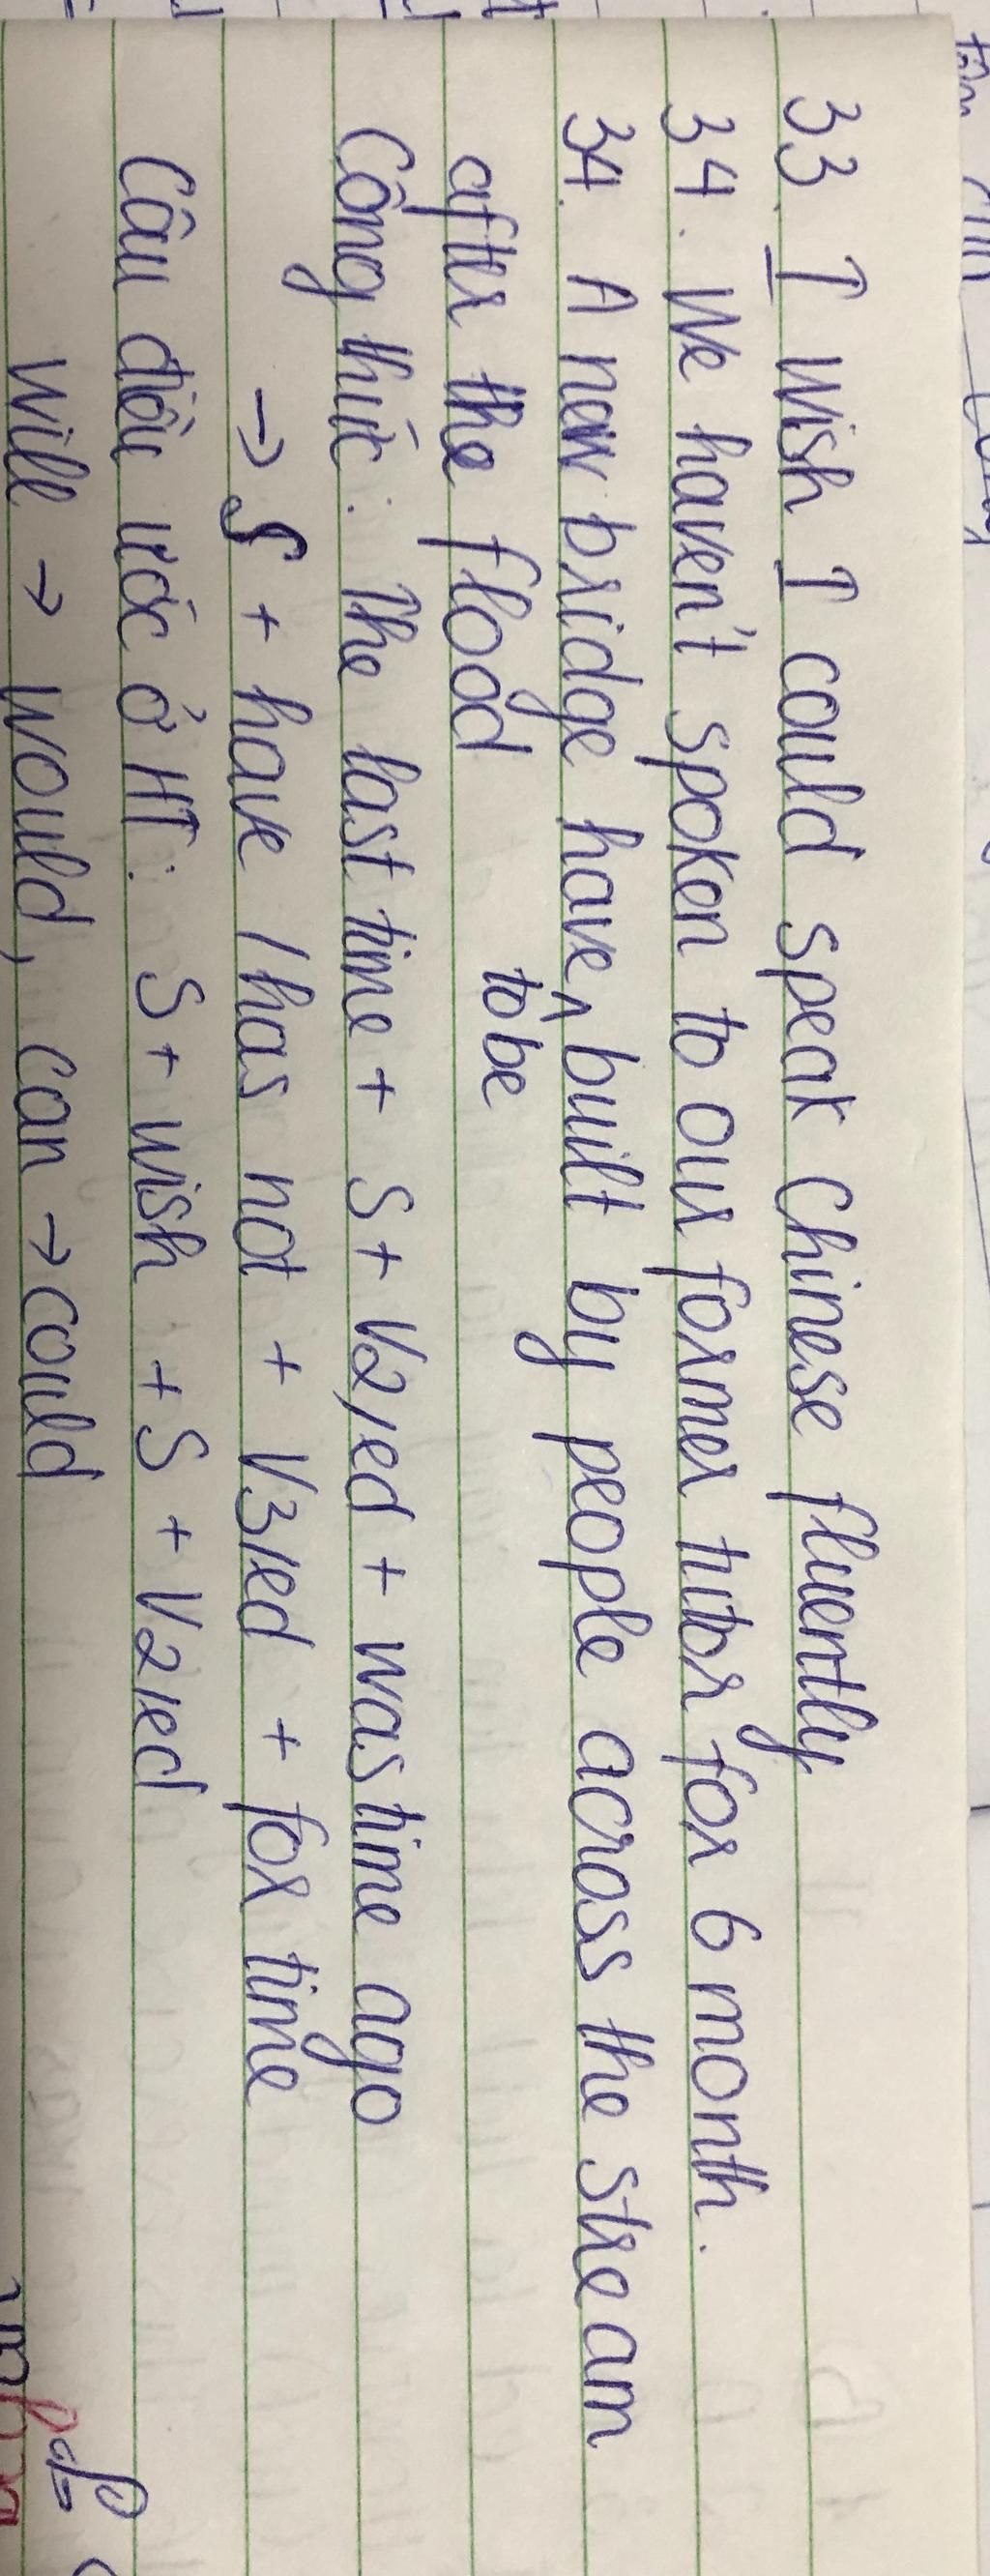 33. I wish I could speak Chinese fluently
34. We haven't spoken to our former tutor for 6 month.
34. A new bridge have ^ built by people across the stream
to be
after the flood
Công thức: The last time + S + V2/ed + was time ago
→ S + have / has not + V3/ed + for time
Câu điều ước ở HT: S + wish + S + V2/ed
will → would, can → could